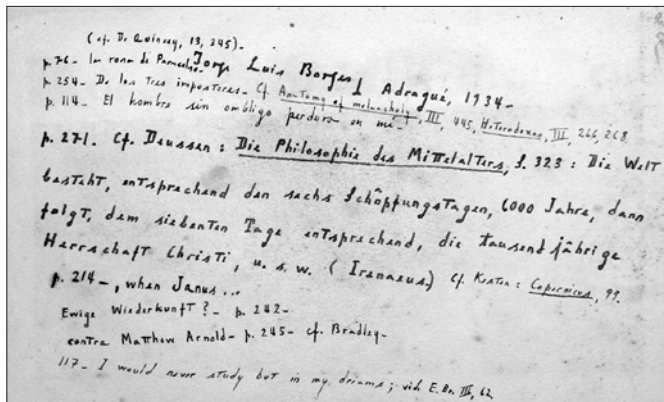 (cf. De Quincey, 13, 345)-
p. 76- la rana di Parnaso-
Jorge Luis Borges, Adrogué, 1934-
p. 254- De los tres impostores- Cf. Anatomy of melancholy, III, 445, Heterodoxos, III, 266, 268.
p. 114- El hombre sin ombligo perdura en mí-
p. 271. Cf. Deussen: Die Philosophie des Mittelalters, S. 323: Die Welt
besteht, entsprechend den sechs Schöpfungstagen, 6000 Jahre, dann
folgt, dem siebenten Tage entsprechend, die tausendjährige
Herrschaft Christi, u. s. w. (Irenaeus.) Cf. Kesten: Copernicus, 99.
p. 214-, when Janus...
Ewige Wiederkunft?- p. 242-
contra Matthew Arnold- p. 245- cf. Bradley-
117- I would never study but in my dreams; vide E. Br. III, 62.